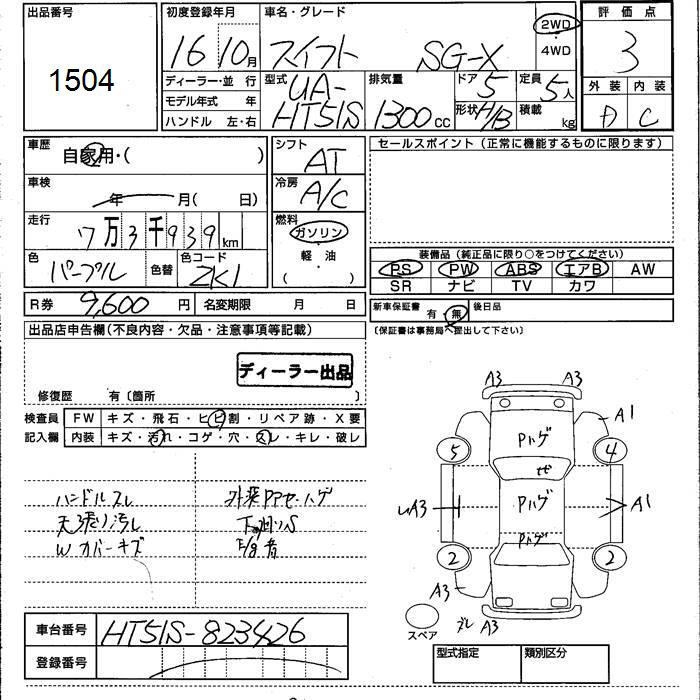 出品番号
1504
初度登録年月
16 10月
車名・グレード
スイフト SG-X
2WD
4WD
評価点
3
外装 内装
D C
ディーラー・並行
モデル年式 年
ハンドル 左・右
型式
UA-
HT51S
排気量
1300 CC
ドア 5
形状 H/B
定員 5人
積載 kg
車歴
自家用・( )
車検
年 月( 日)
走行
7万3千939 km
色
パープル
色替
色コード
ZK1
シフト
AT
冷房
A/C
燃料
ガソリン
(軽・油)
セールスポイント(正常に機能するものに限ります)
装備品(純正品に限り○をつけてください)
PS PW ABS エアB AW
SR ナビ TV カワ
R券 9,600 円 名変期限 月 日
新車保証書 有・無 後日品
(保証書は事務局へ提出して下さい)
出品店申告欄(不良内容・欠品・注意事項等記載)
ディーラー出品
修復歴 有〔箇所 〕
検査員
記入欄
FW キズ・飛石・ヒビ割・リペア跡・X要
内装 キズ・汚れ・コゲ・穴・スレ・キレ・破レ
ハンドルスレ
天張り汚レ
Wカバーキズ
外装PPセーハゲ
下廻りS
A3 A3
A1
Pハゲ
5 4
Pハゲ
A3
A1
Pハゲ
2 2
A3
ズレ A3
スペア
車台番号 HT51S-823426
登録番号
型式指定 類別区分